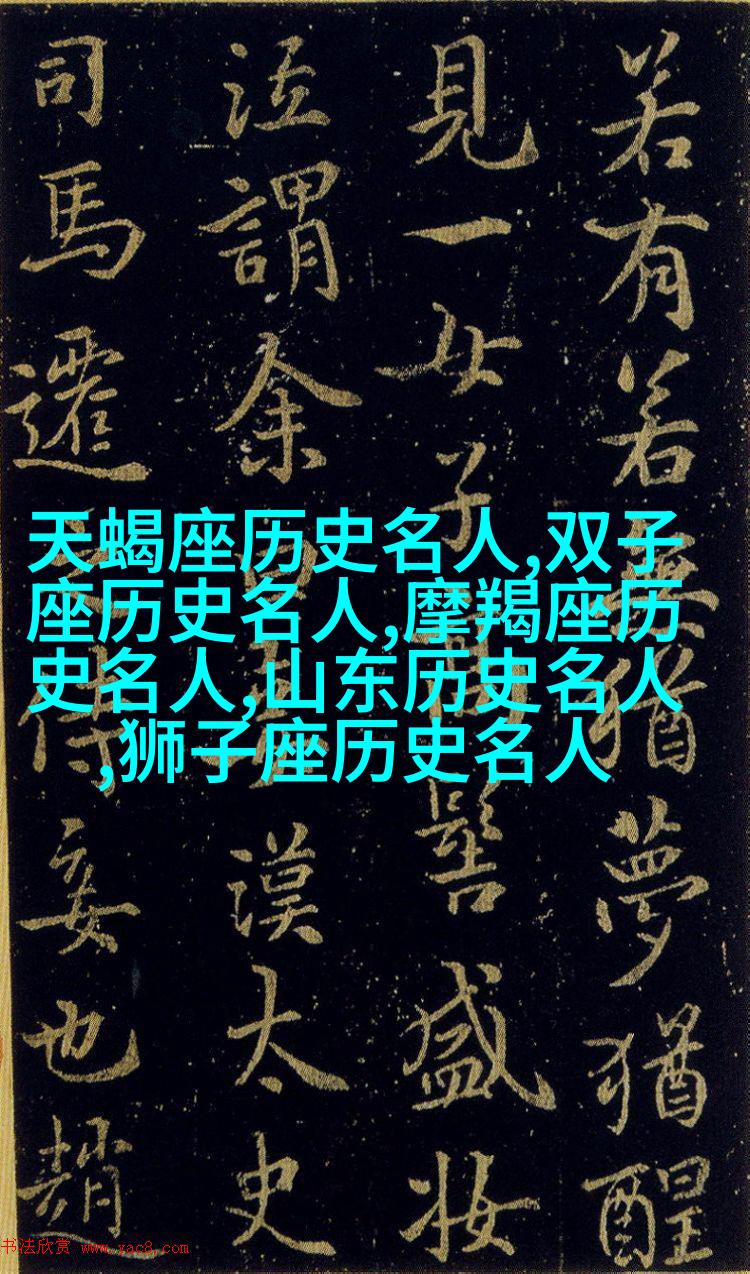 天蝎座历史名人,双子
座历史名人,摩羯座历
史名人,山东历史名人
,狮子座历史名人
若有若無猶夢猶醒
見一女子髻盛妝
泣謂余曰漢太史
司馬遷之侍妾也趙
书法欣赏 www.yac8.com